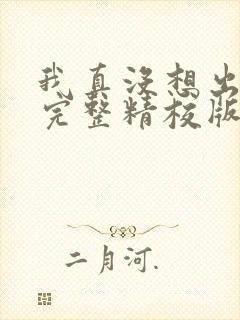 我真没想出
完整精校版
二月河.